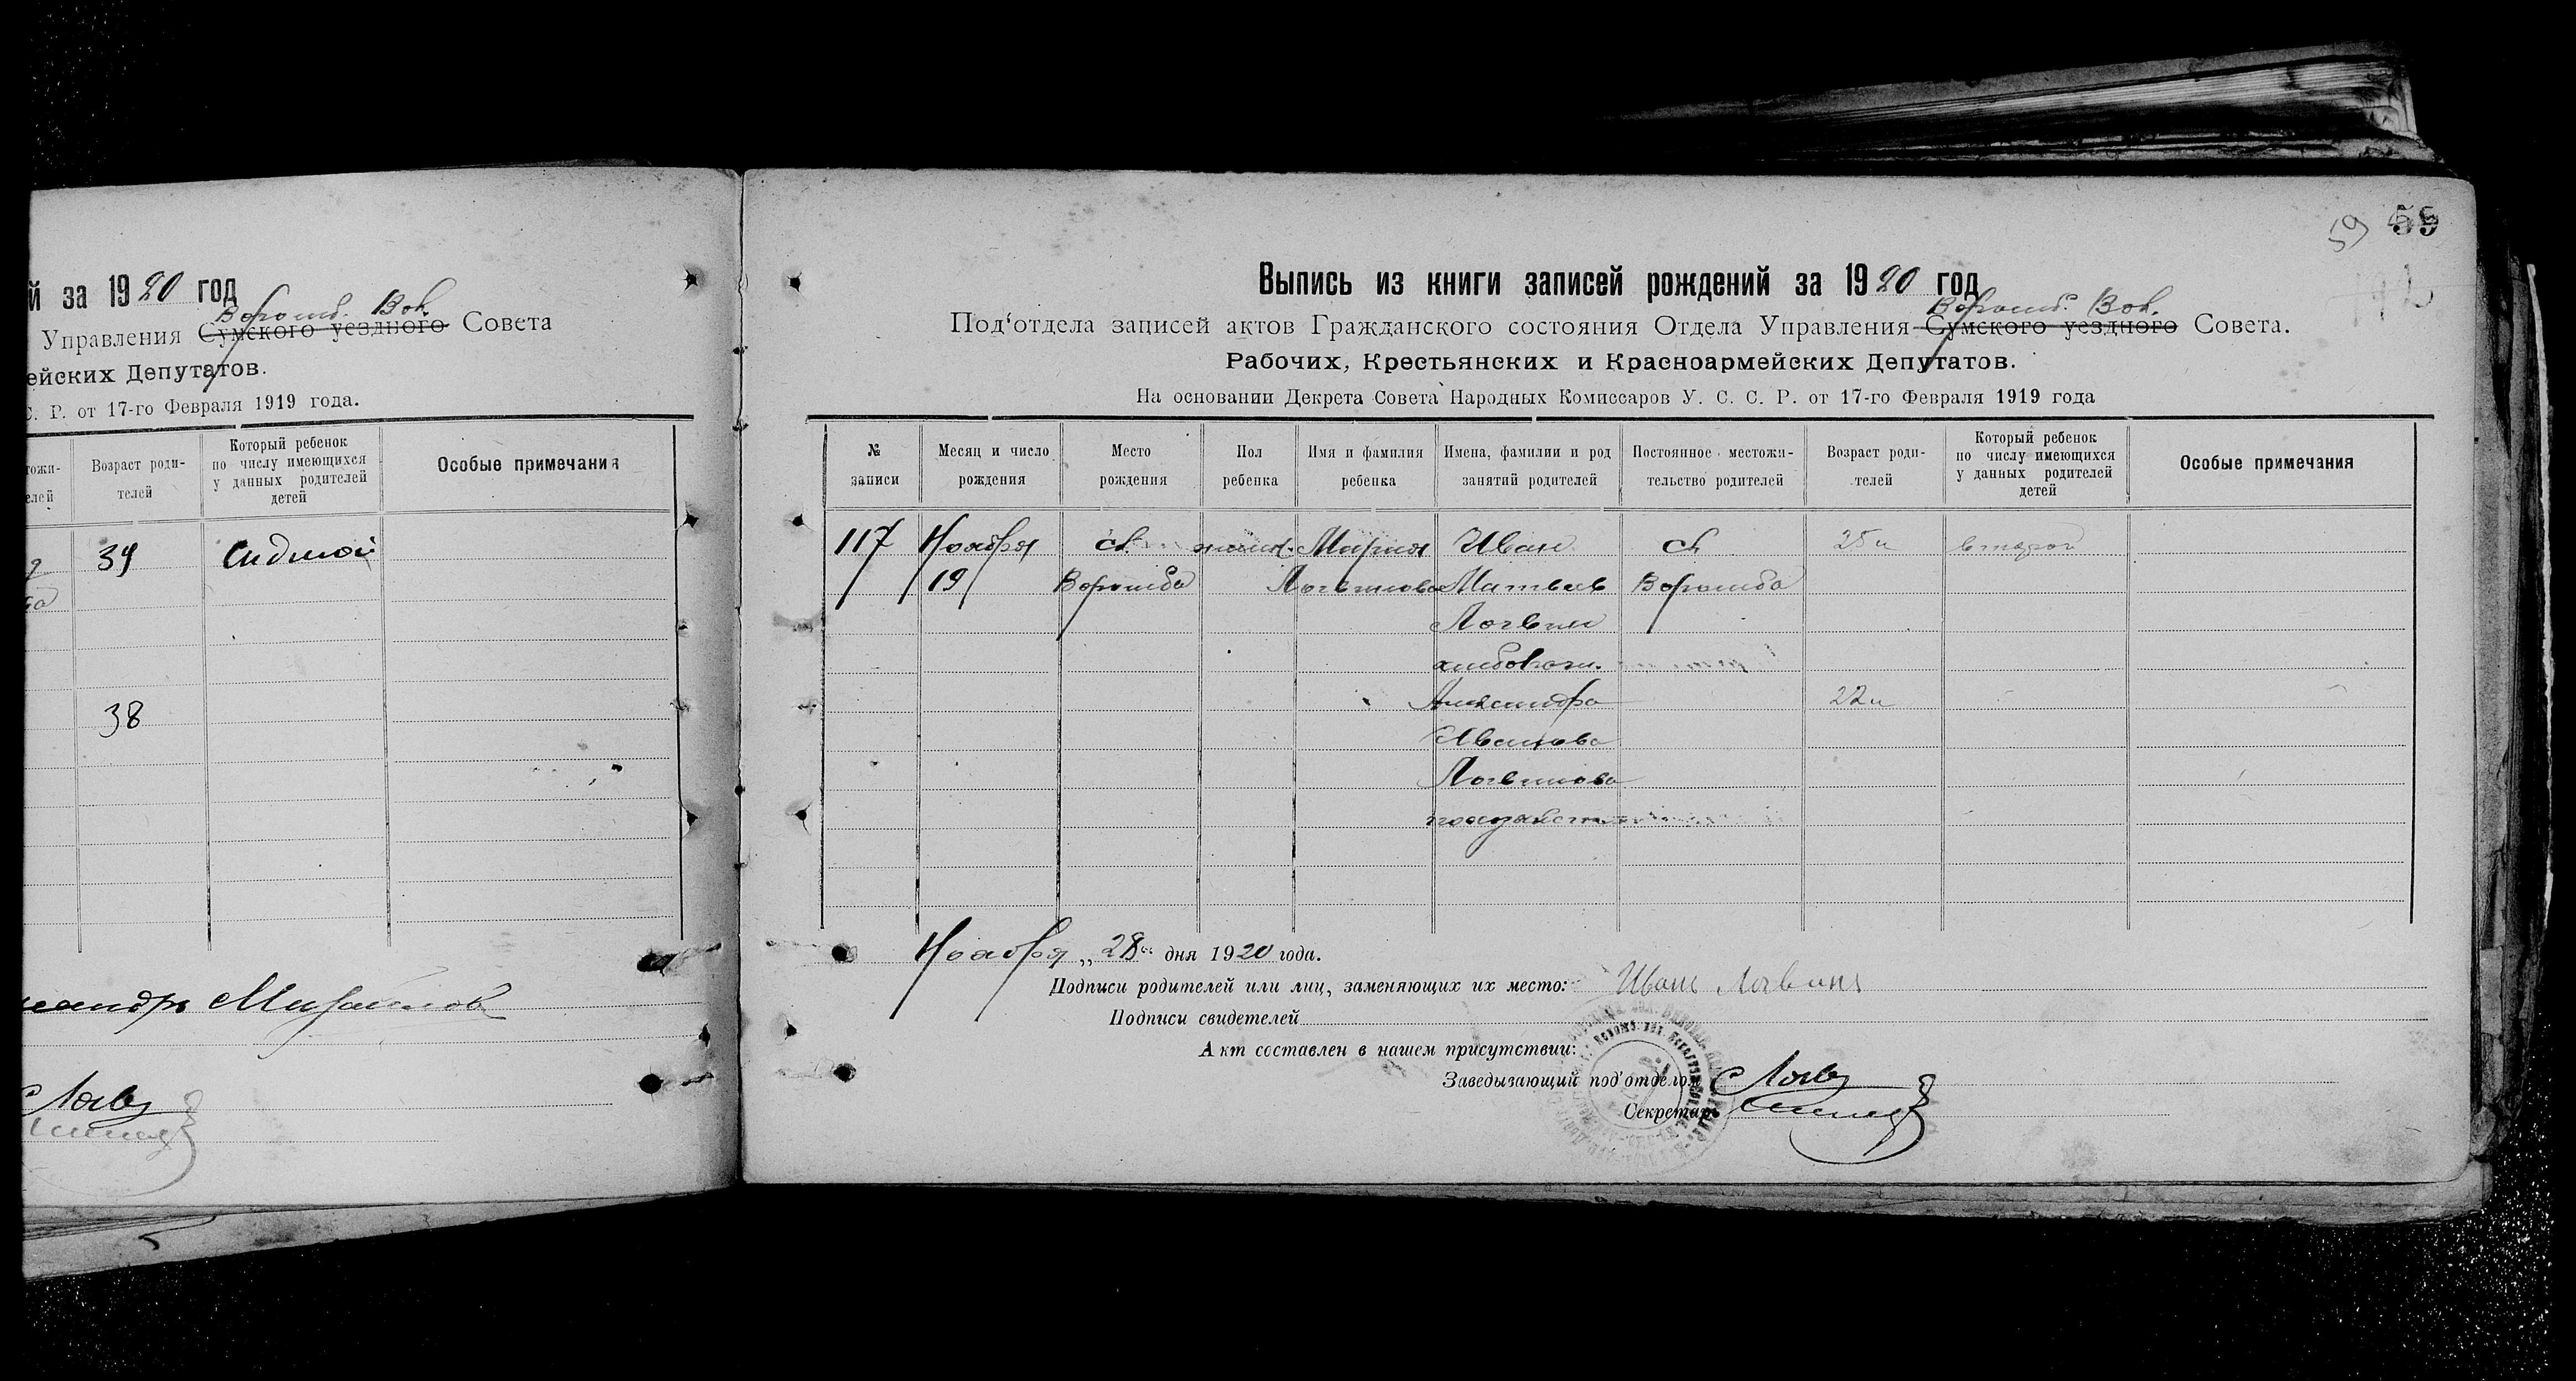 й за 1920 год
Ворожб. Вол.
Управления Сумского уездного Совета
ейских Депутатов.
С. Р. от 17-го Февраля 1919 года.
Возраст роди-
телей
Который ребенок
по числу имеющихся
у данных родителей
детей
Особые примечания
39
38
59
59
Выпись из книги записей рождений за 1920 год
Ворожб. Вол.
Под‘отдела записей актов Гражданского состояния Отдела Управления Сумского уездного Совета.
Рабочих, Крестьянских и Красноармейских Депутатов.
На основании Декрета Совета Народных Комиссаров У. С. С. Р. от 17-го Февраля 1919 года
№
записи
Месяц и число
рождения
Место
рождения
Пол
ребенка
Имя и фамилия
ребенка
Имена, фамилии и род
занятий родителей
Постоянное местожи-
тельство родителей
Возраст роди-
телей
Который ребенок
по числу имеющихся
у данных родителей
детей
Особые примечания
117 Ноября сл. женск. Мария Иван сл. 25 л второй
19 Ворожба Логвинова Матвеев Ворожба
Логвин
хлебопаш.
Александра 22 л
Иванова
Логвинова
Ноября „28“ дня 1920 года.
Подписи родителей или лиц, заменяющих их место: Иван Логвинъ
Подписи свидетелей
Акт составлен в нашем присутствии:
Заведывающий под'отделом
Секретарь